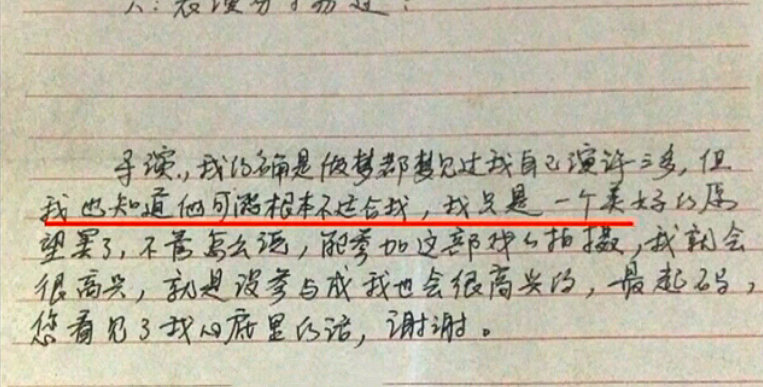 导演,我的确是做梦都梦见过我自己演许三多,但
我也知道他可能根本不适合我,我只是一个美好的愿
望罢了,不管怎么说,能参加这部戏的拍摄,我就会
很高兴,就是没参与成我也会很高兴的,最起码,
您看见了我心底里的话,谢谢。